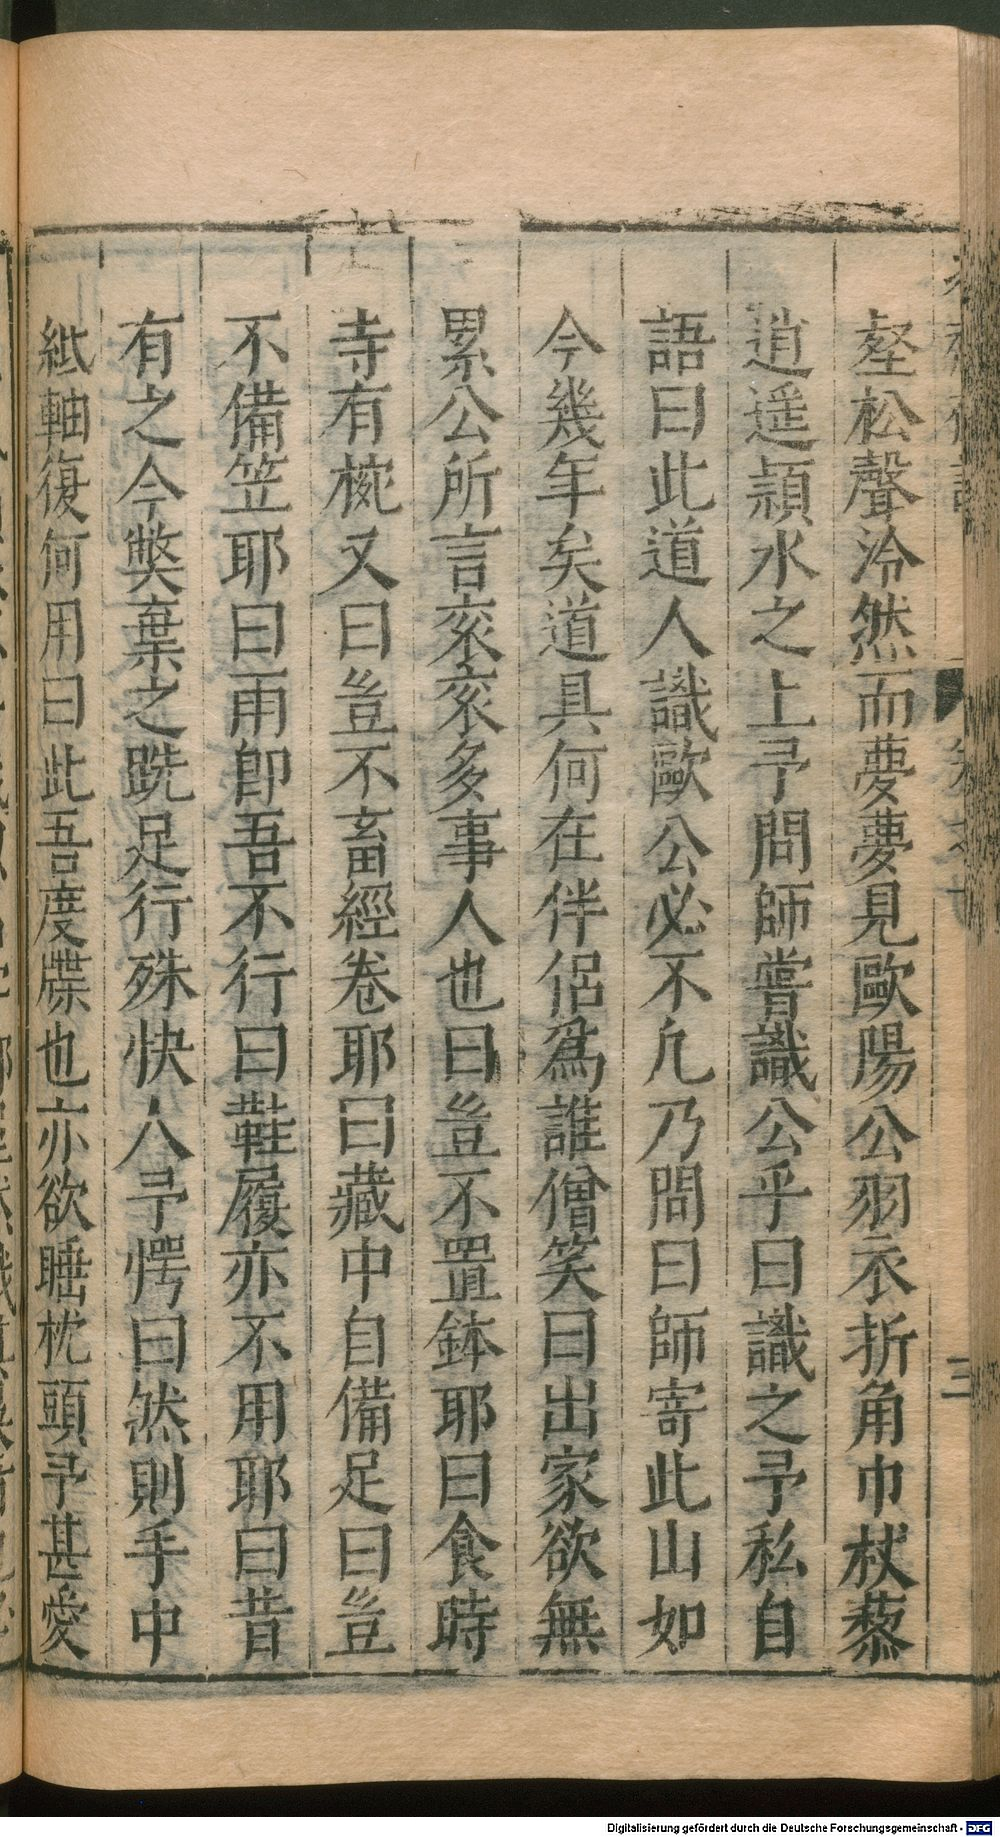 壑松聲泠然而夢夢見歐陽公羽衣折角巾杖藜
逍遥頴水之上予問師嘗識公乎曰識之予私自
語曰此道人識歐公必不凢乃問曰師寄此山如
今幾年矣道具何在伴侣爲誰僧笑曰出家欲無
累公所言衮衮多事人也曰豈不置鉢耶曰食時
寺有椀又曰豈不畜經卷耶曰藏中自備足曰豈
不備笠耶曰雨卽吾不行曰鞋履亦不用耶曰昔
有之今獘棄之跣足行殊快人予愕曰然則手中
紙軸復何用曰此吾度牒也亦欲睡枕頭予甚愛
三
Digitalisierung gefördert durch die Deutsche Forschungsgemeinschaft - DFG